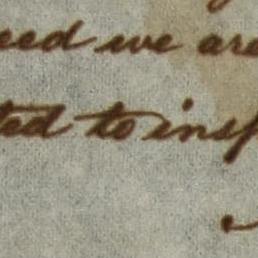 eed we are
ted to insp